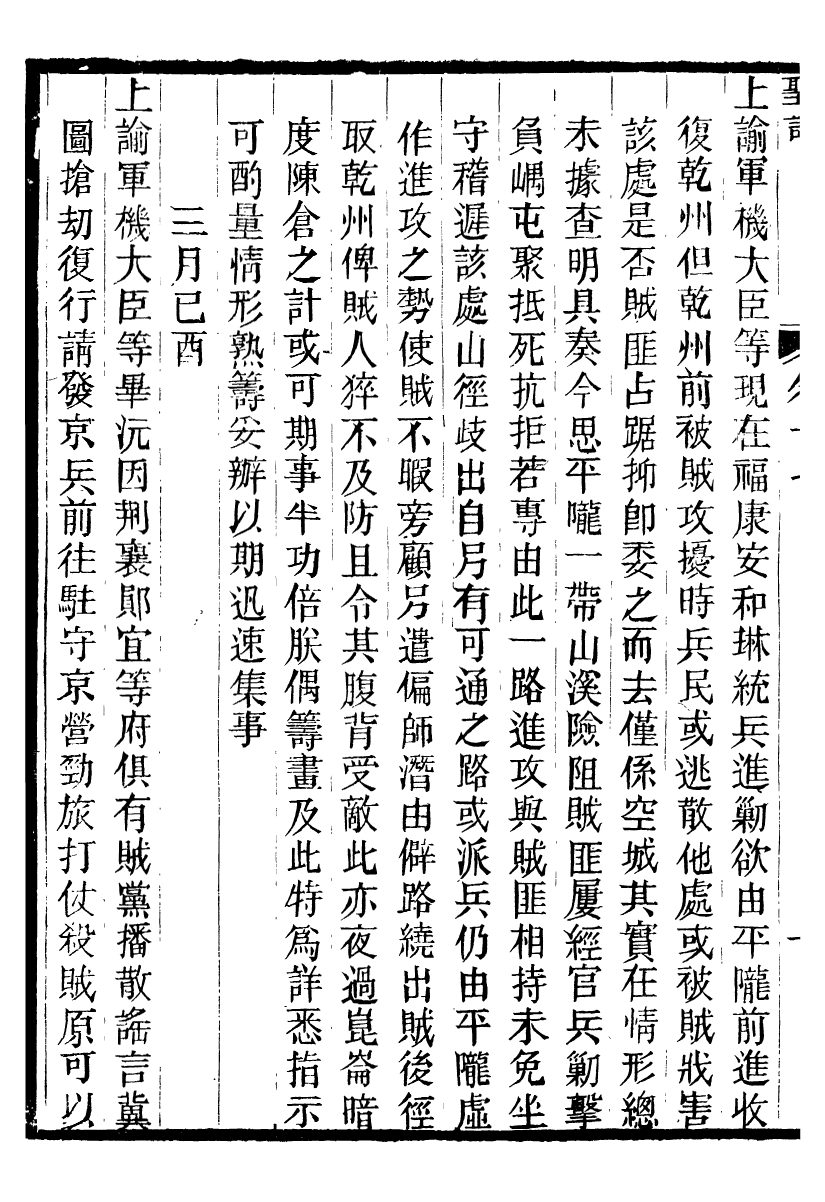 聖訓
上諭軍機大臣等現在福康安和琳統兵進勦欲由平隴前進收
復乾州但乾州前被賊攻擾時兵民或逃散他處或被賊戕害
該處是否賊匪占踞抑卽委之而去僅係空城其實在情形總
未據查明具奏今思平隴一帶山溪險阻賊匪屢經官兵勦擊
負嵎屯聚抵死抗拒若專由此一路進攻與賊匪相持未免坐
守稽遲該處山徑歧出自另有可通之路或派兵仍由平隴虛
作進攻之勢使賊不暇旁顧另遣偏師潛由僻路繞出賊後徑
取乾州俾賊人猝不及防且令其腹背受敵此亦夜過崑崙暗
度陳倉之計或可期事半功倍朕偶籌畫及此特爲詳悉指示
可酌量情形熟籌妥辦以期迅速集事
三月己酉
上諭軍機大臣等畢沅因荆襄鄖宜等府俱有賊黨播散謠言冀
圖搶刼復行請發京兵前往駐守京營勁旅打仗殺賊原可以